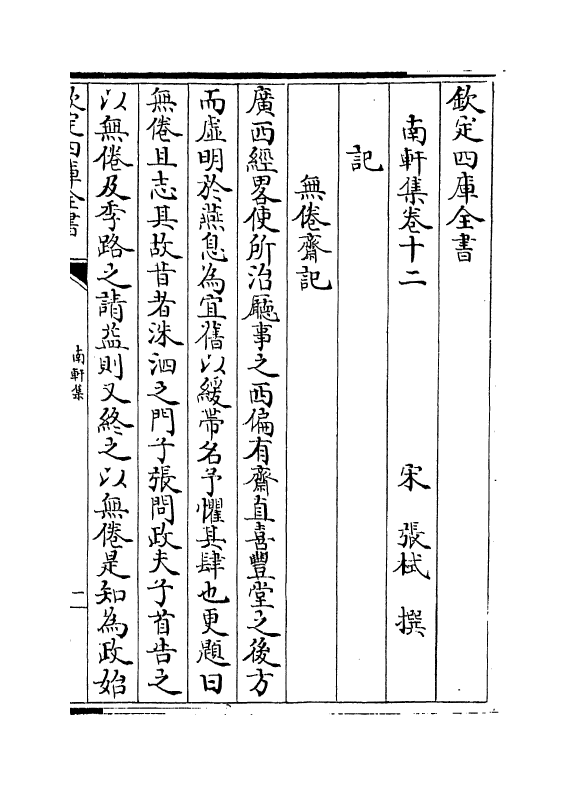 欽定四庫全書
南軒集卷十二
宋　張栻　撰
記
無倦齋記
廣西經畧使所治廳事之西偏有齋直喜豐堂之後方
而虛明於燕息為宜舊以緩帶名予懼其肆也更題曰
無倦且志其故昔者洙泗之門子張問政夫子首告之
以無倦及季路之請益則又終之以無倦是知為政始
欽定四庫全書
南軒集
一